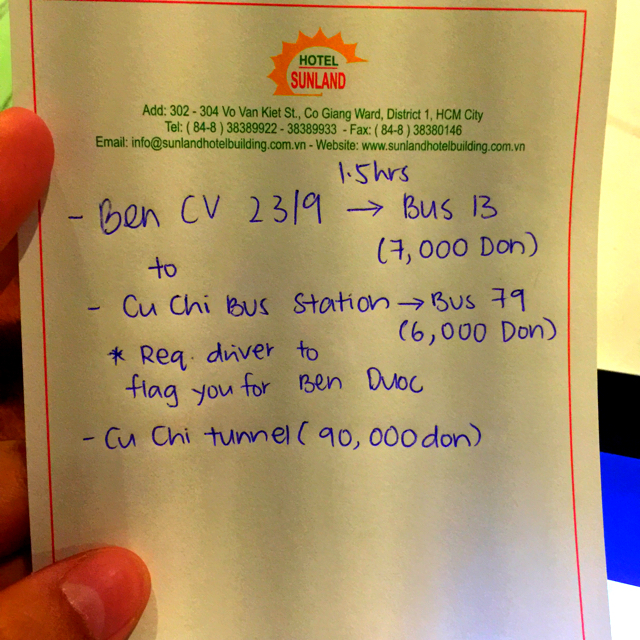 HOTEL
SUNLAND
Add: 302 - 304 Vo Van Kiet St., Co Giang Ward, District 1, HCM City
Tel: ( 84-8 ) 38389922 - 38389933 - Fax: ( 84-8 ) 38380146
Email: info@sunlandhotelbuilding.com.vn - Website: www.sunlandhotelbuilding.com.vn
1.5hrs
- Ben CV 23/9 → Bus 13
(7,000 Don)
to
- Cu Chi Bus Station → Bus 79
(6,000 Don)
* Req. driver to
flag you for Ben Duoc
- Cu Chi tunnel (90,000don)